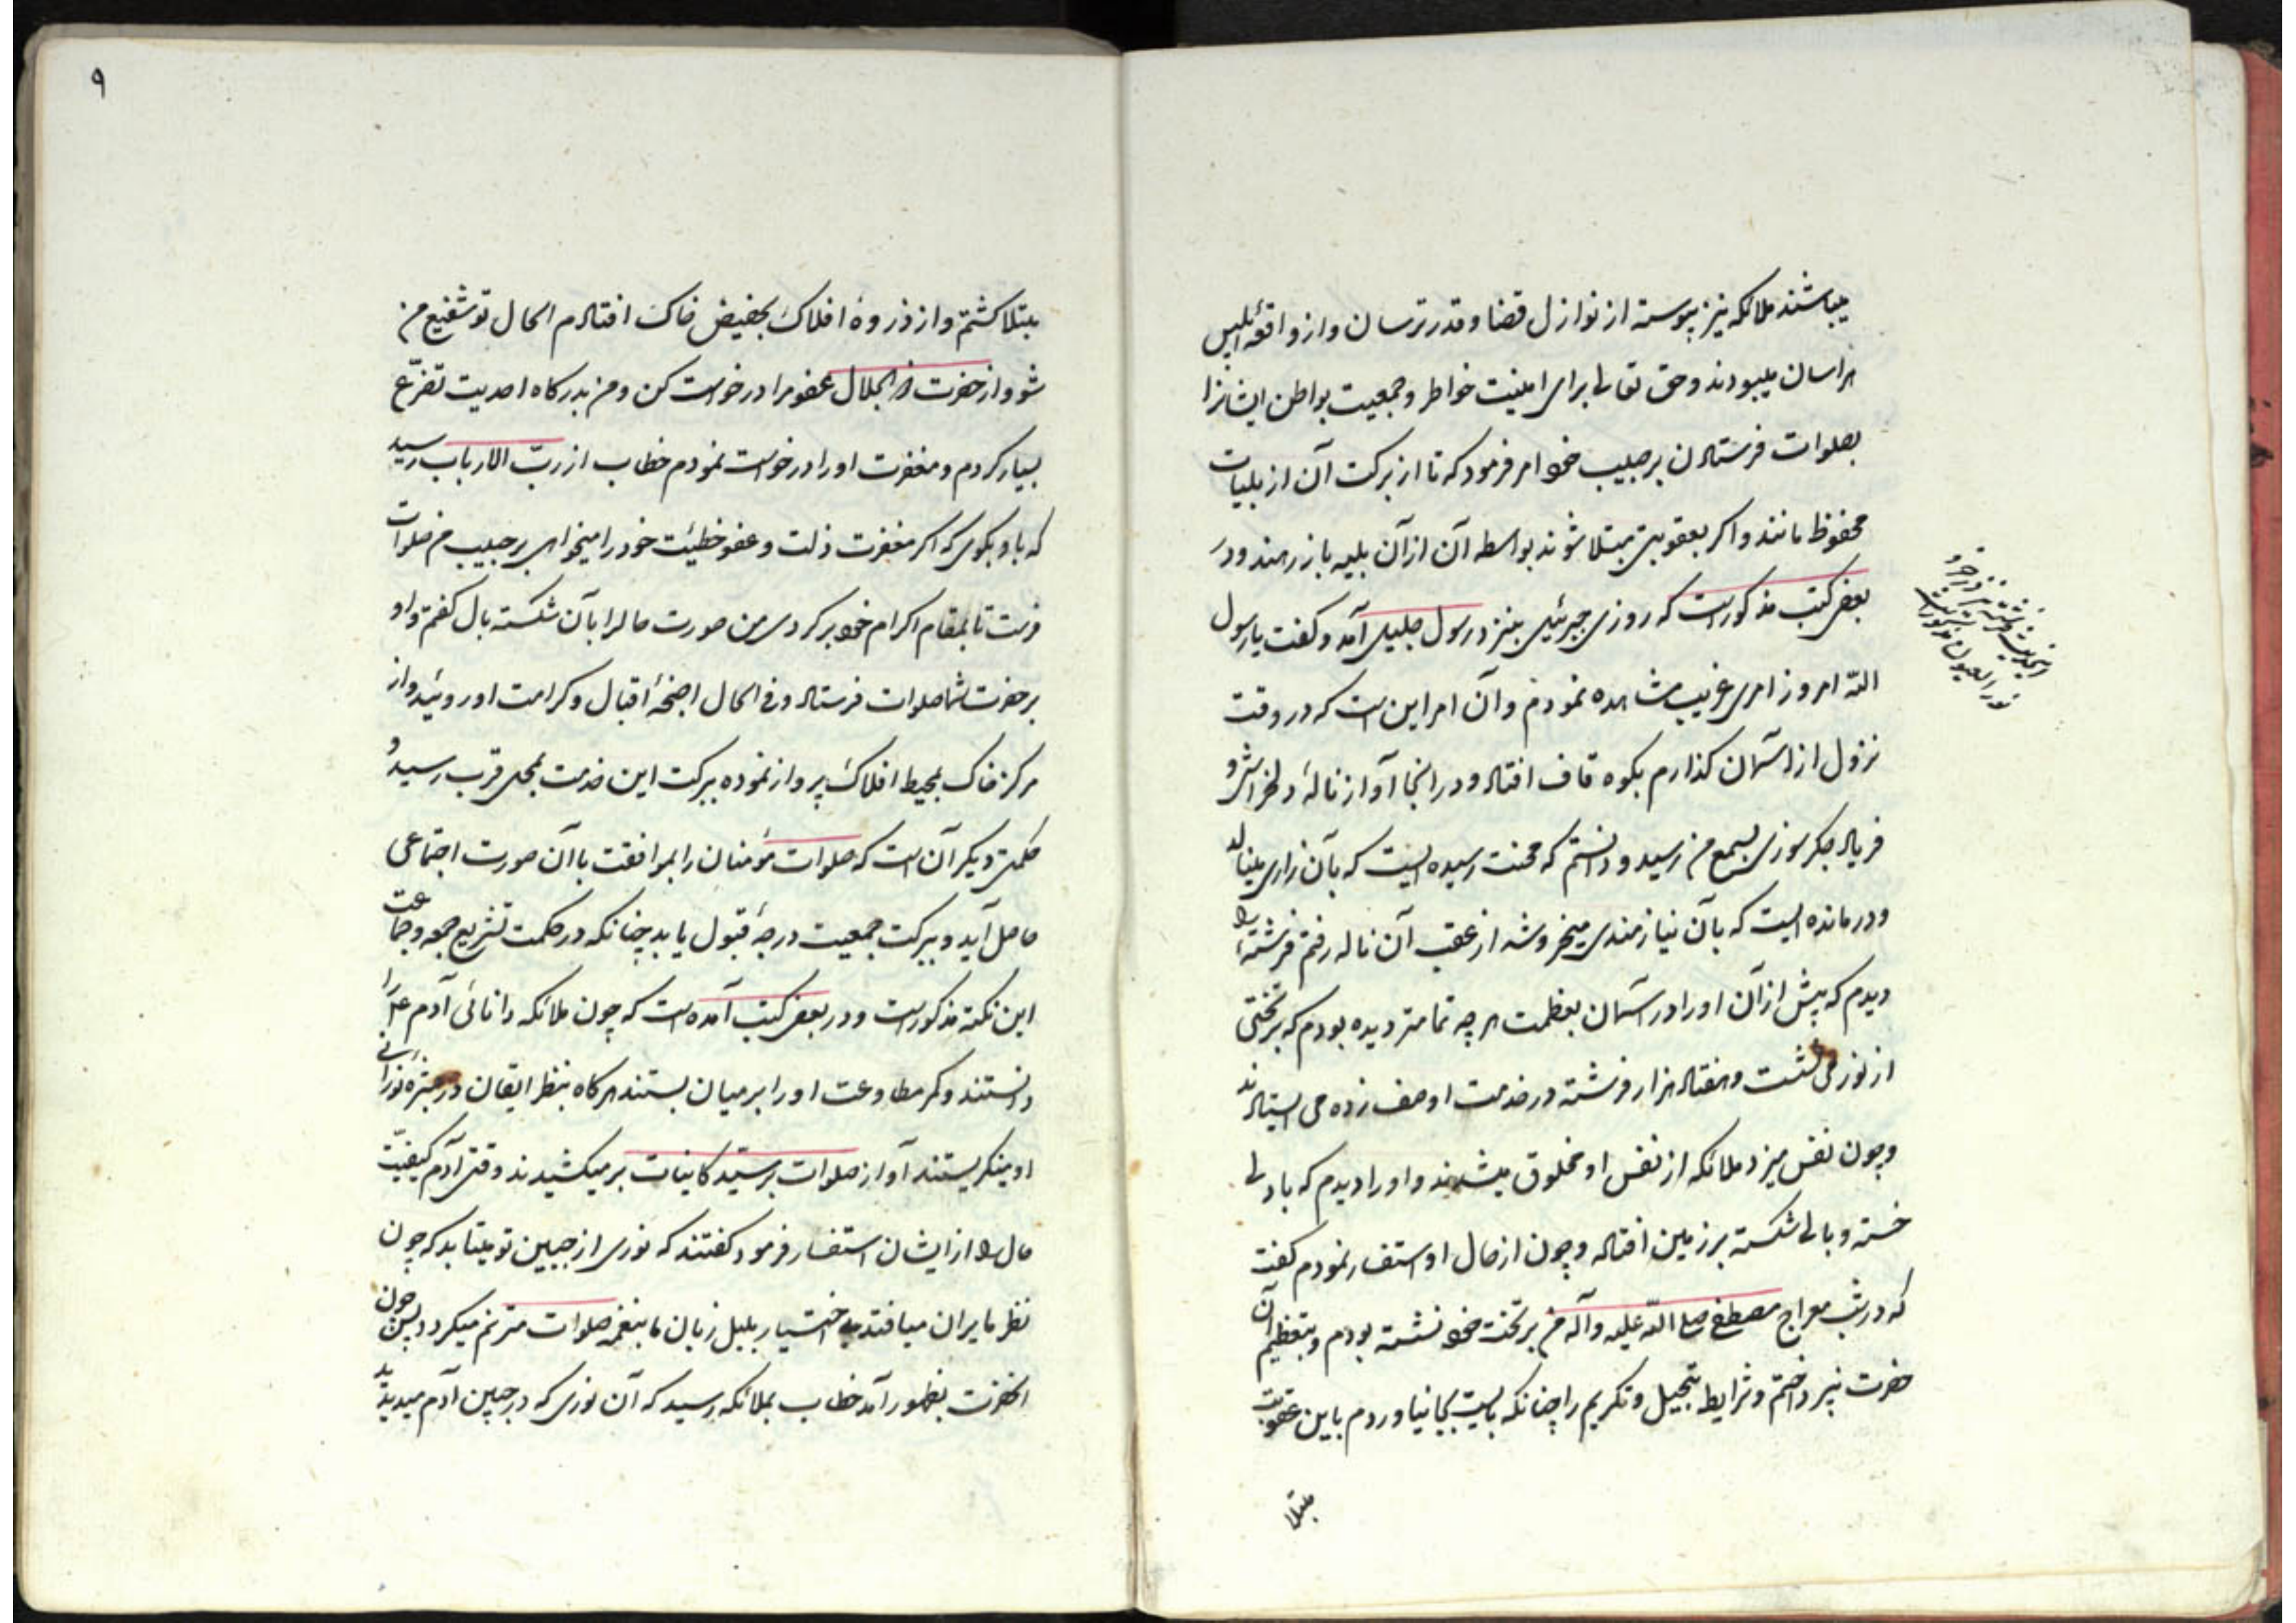 میباشند ملائکه نیز پیوسته از نوازل قضا و قدر ترسان و از واقعهٔ ابلیس
هراسان میبودند و حق تعالی برای امنیت خواطر و جمعیت بواطن ایشانرا
بصلوات فرستادن بر حبیب خود امر فرمود که تا از برکت آن از بلیات
محفوظ مانند و اکر بعقوبتی مبتلا شوند بواسطه آن از آن بلیه باز رهند و در
بعض کتب مذکورست که روزی جبرئیل بنزد رسول جلیل آمد و کفت یا رسول
الله امروز امری غریب مشاهده نمودم و آن امر این است که در وقت
نزول از آسمان کذارم بکوه قاف افتاد و در انجا آواز نالهٔ دلخراش و
فریاد جکرسوزی بسمع من رسید و دانستم که محنت رسیده ایست که بآن زاری مینالد
و درمانده ایست که بآن نیازمندی میخروشد از عقب آن ناله رفتم فرشتهٔ را
دیدم که پیش از آن او را در آسمان بعظمت هر چه تمامتر دیده بودم که بر تختی
از نور می نشست و هفتاد هزار فرشته در خدمت او صف زده می ایستادند
و چون نفس میزد ملائکه از نفس او مخلوق میشدند و او را دیدم که با دلی
خسته و بالی شکسته بر زمین افتاده و چون از حال او استفسار نمودم کفت
که در شب معراج مصطفی صلی الله علیه و آله من بر تخت خود نشسته بودم و بتعظیم آن
حضرت نپرداختم و شرایط تبجیل و تکریم را چنانکه بایست بجا نیاوردم باین عقوبت
مبتلا
نور العیون
۹
مبتلا کشتم و از ذروهٔ افلاک بحضیض خاک افتادم الحال تو شفیع من
شو و از حضرت ذو الجلال عفو مرا درخواست کن و من بدرکاه احدیت تضرّع
بسیار کردم و مغفرت او را درخواست نمودم خطاب از ربّ الارباب رسید
که باو بکوی که اکر مغفرت ذلت و عفو خطیئت خود را میخواهی بر حبیب من صلوات
فرست تا بمقام اکرام خود برکردی من صورت حال را بآن شکسته بال کفتم و او
بر حضرت شما صلوات فرستاد و فی الحال اجنحهٔ اقبال و کرامت او روئید و از
مرکز خاک بمحیط افلاک پرواز نموده ببرکت این خدمت بمحل قرب رسید و
حکمتی دیکر آن است که صلوات مؤمنان را بموافقت با آن صورت اجتماعی
حاصل آید و ببرکت جمعیت درجهٔ قبول یابد چنانکه در حکمت تشریع جمعه و جماعت
این نکته مذکورست و در بعض کتب آمده است که چون ملائکه دانائی آدم ع را
دانستند و کمر مطاوعت او را بر میان بستند هر کاه بنظر ایقان در بشرهٔ نورانی
او مینکریستند آواز صلوات بر سیّد کاینات بر میکشیدند وقتی آدم کیفیّت
حال را از ایشان استفسار فرمود کفتند که نوری از جبین تو میتابد که چون
نظر ما بران میافتد بی اختیار بلبل زبان ما بنغمه صلوات مترنم میکردد پس چون
آنحضرت بظهور آمد خطاب بملائکه رسید که آن نوری که در جبین آدم میدیدید